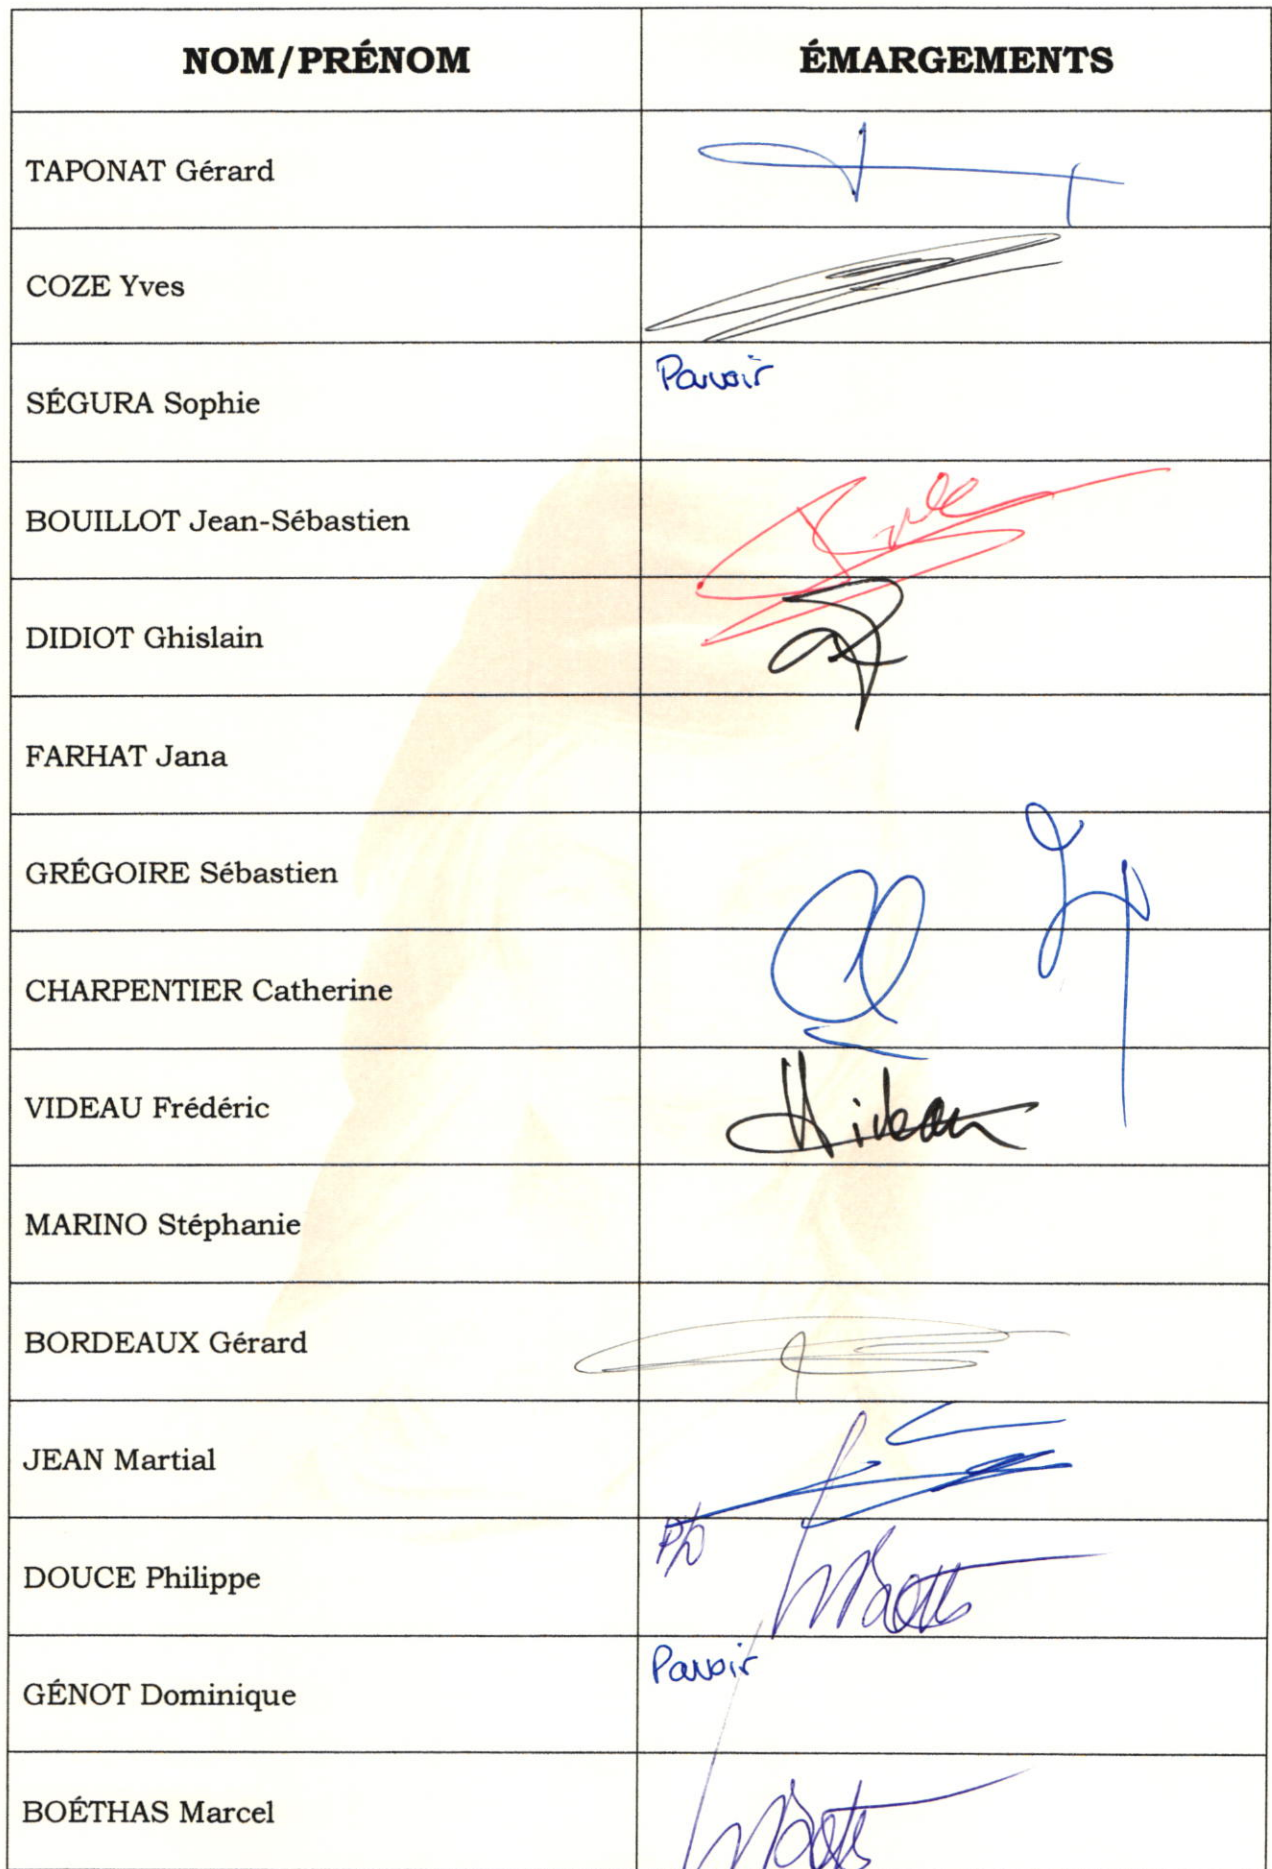 NOM/PRÉNOM ÉMARGEMENTS
TAPONAT Gérard
COZE Yves
SÉGURA Sophie Pouvoir
BOUILLOT Jean-Sébastien
DIDIOT Ghislain
FARHAT Jana
GRÉGOIRE Sébastien
CHARPENTIER Catherine
VIDEAU Frédéric Videau
MARINO Stéphanie
BORDEAUX Gérard
JEAN Martial
DOUCE Philippe P/o
GÉNOT Dominique Pouvoir
BOÉTHAS Marcel